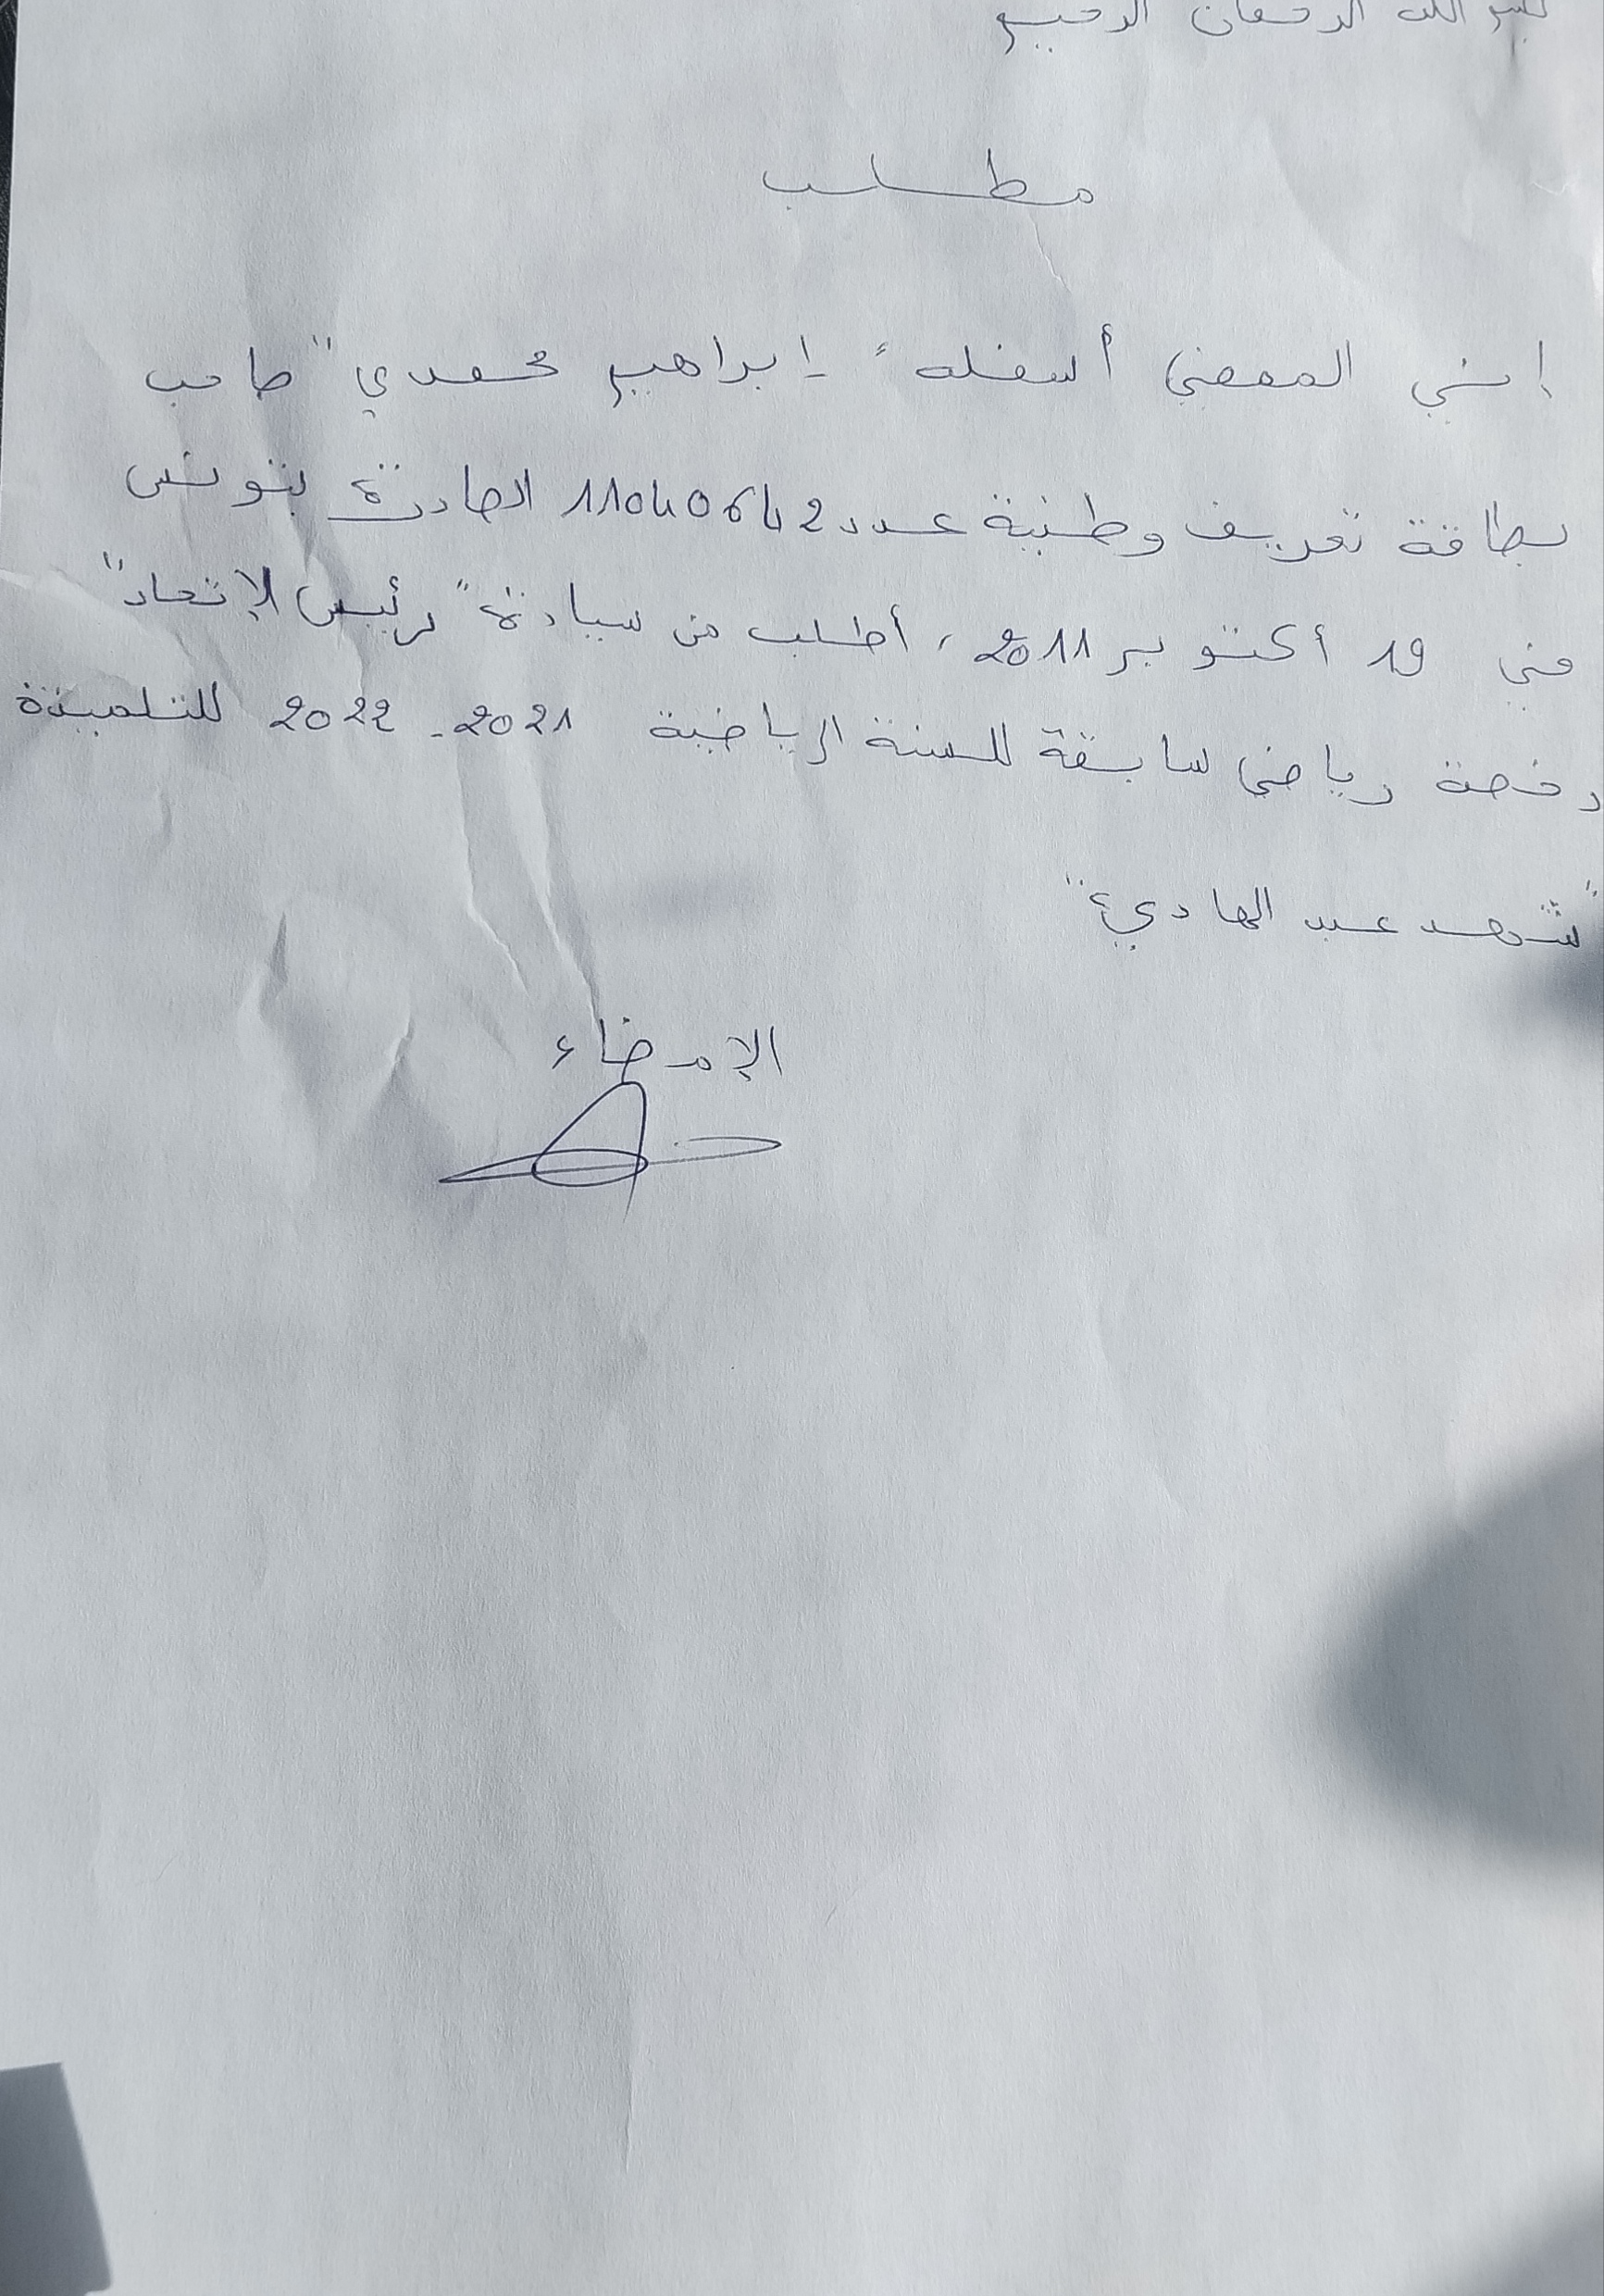 بسم الله الرحمان الرحيم
مطلب
إنني الممضي أسفله "إبراهيم محمدي" صاحب
بطاقة تعريف وطنية عدد 11040642 الصادرة بتونس
في 19 أكتوبر 2011، أطلب من سيادة "رئيس الإتحاد"
رخصة رياضي سابقة للسنة الرياضية 2021-2022 للتلميذة
"شهد عبد الهادي"
الإمضاء